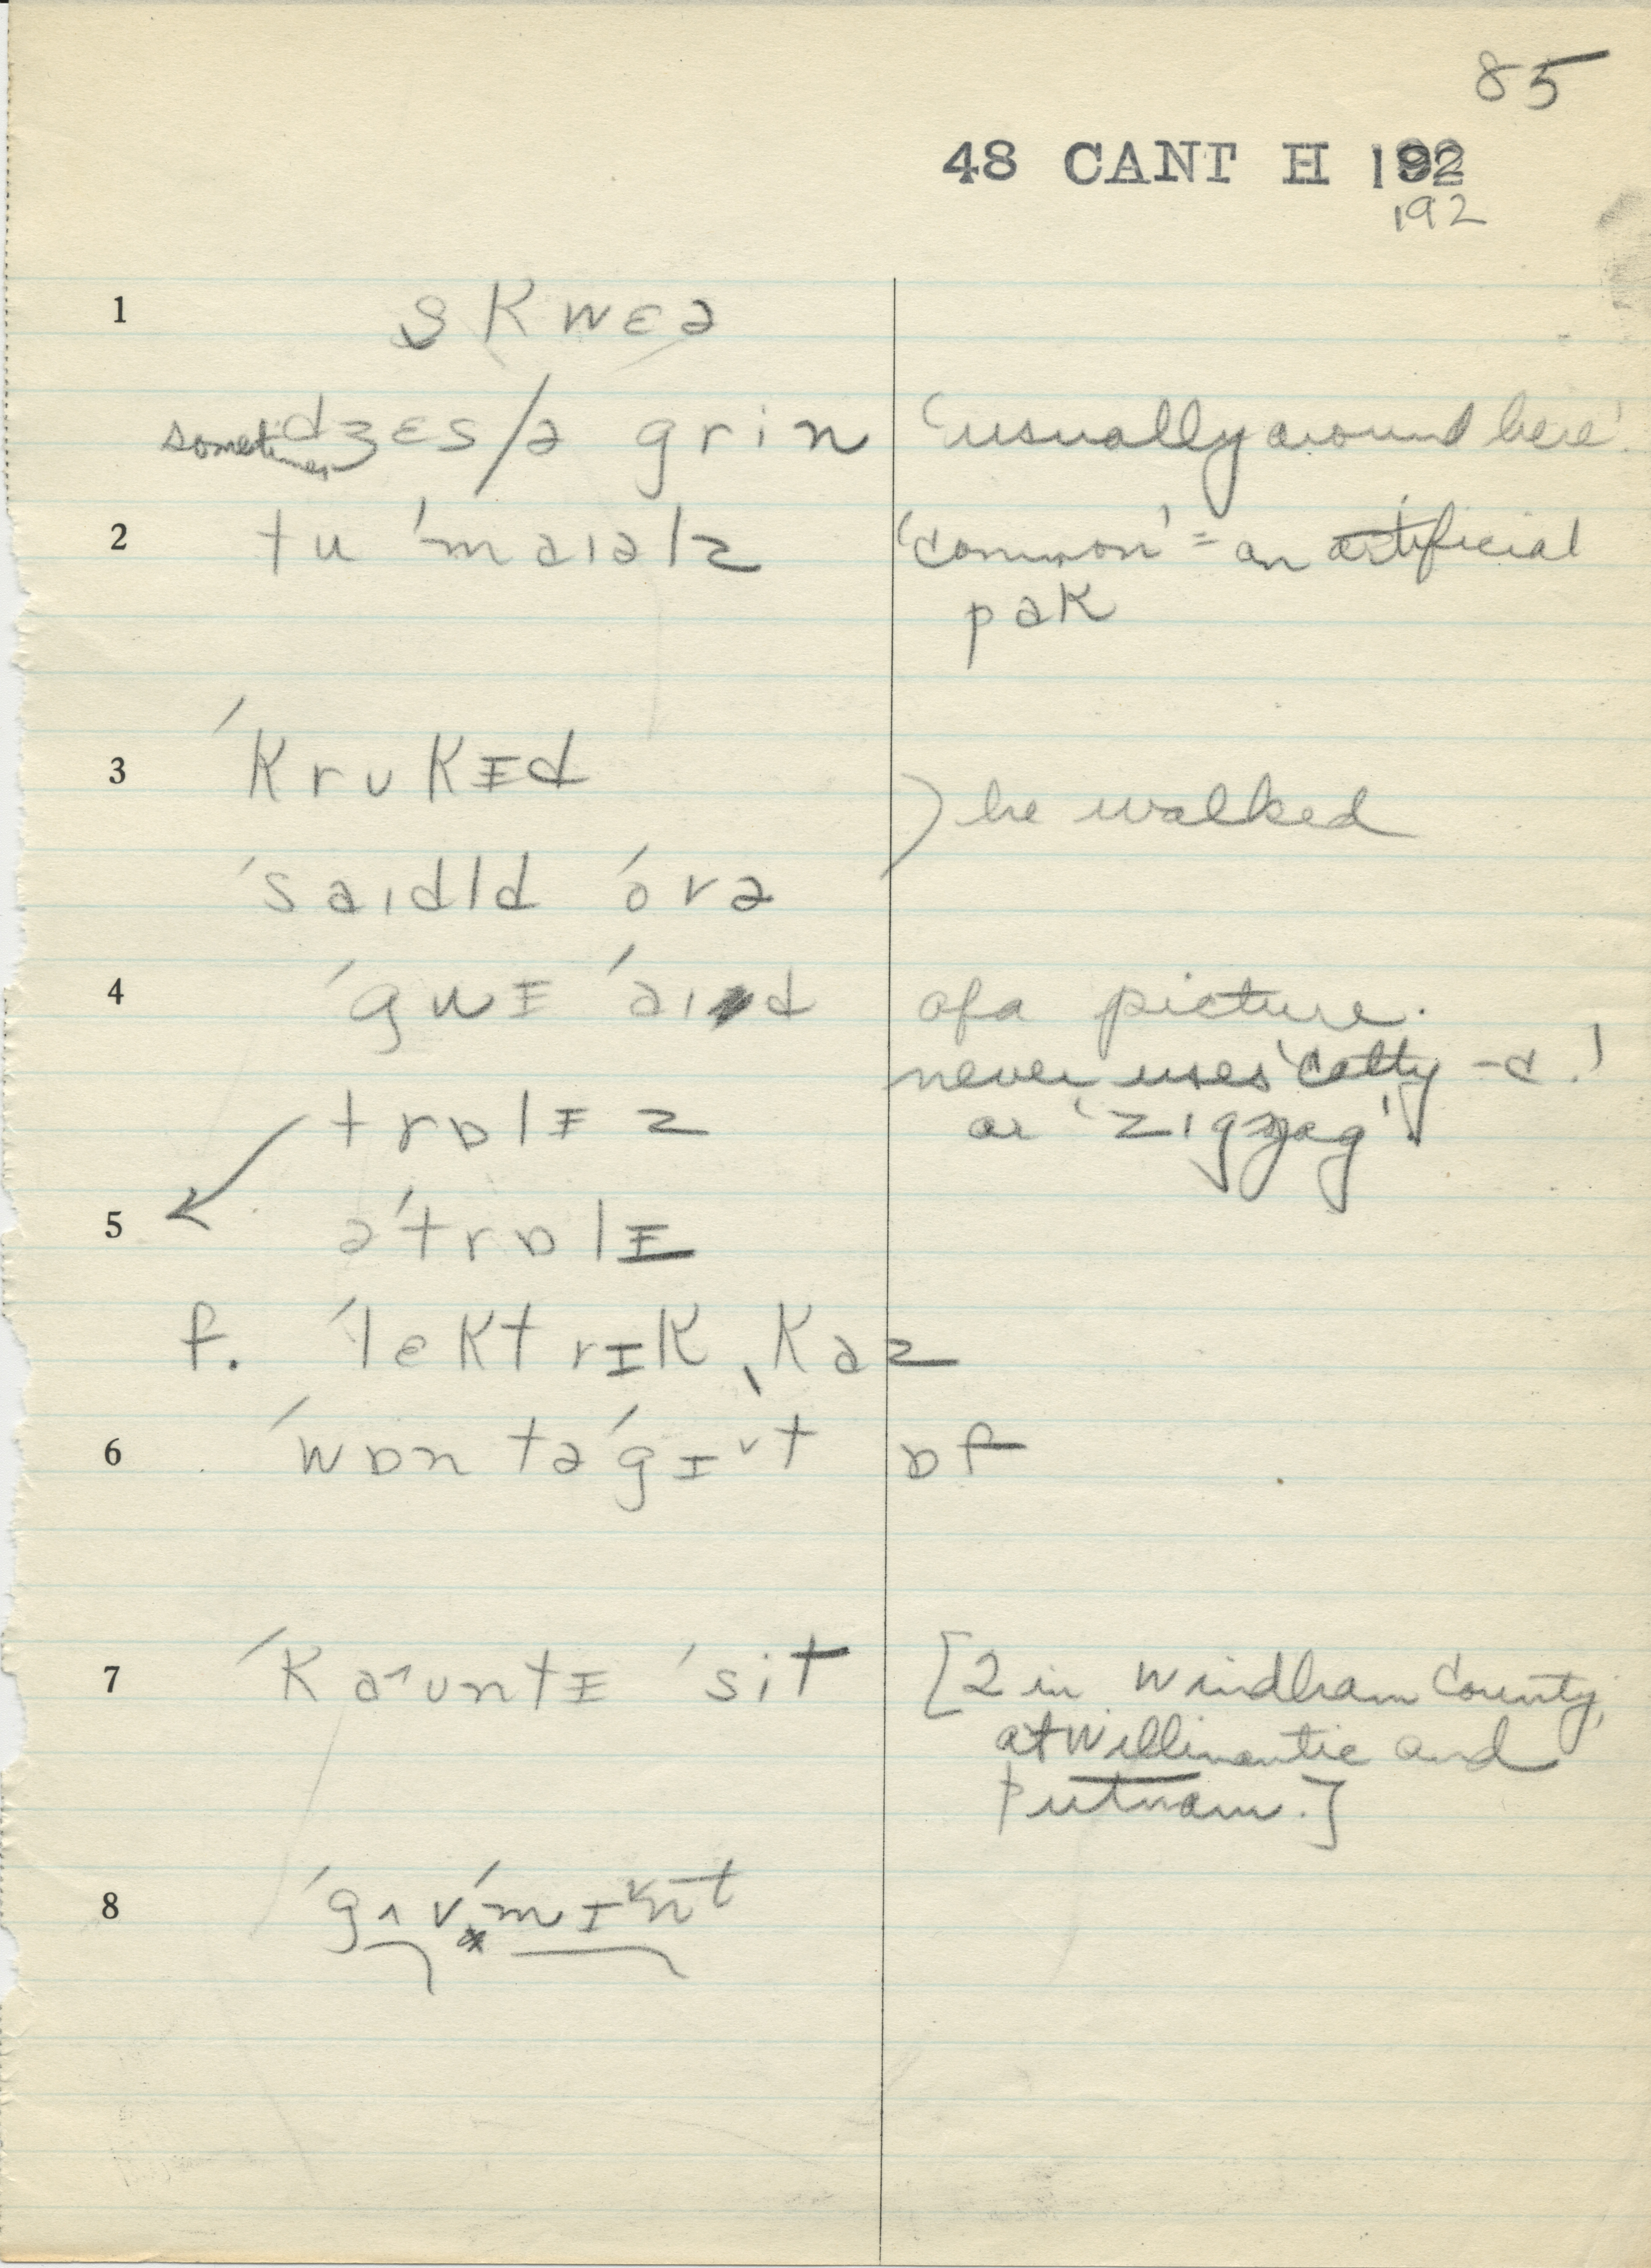 85
48 CANT H 192
192
1 skwɛə
sometimes dʒɛs/ə grin 'usually around here'.
2 tu 'maɪəlz 'common' = an artificial
pak
3 'krukɪd ) he walked
'saɪdld 'ovə
4 'gwɪ 'aɪd of a picture.
never uses 'catty-c.'
trɒlɪz or 'zigzag'.
5 ə'trɒlɪ
f. 'lektrɪk ˌkaz
6 'wɒn tə 'gɪt ɒf
7 'kaʊntɪ 'sit [2 in Windham County,
at Willimantic and
Putnam.]
8 'gʌv'mɪnt